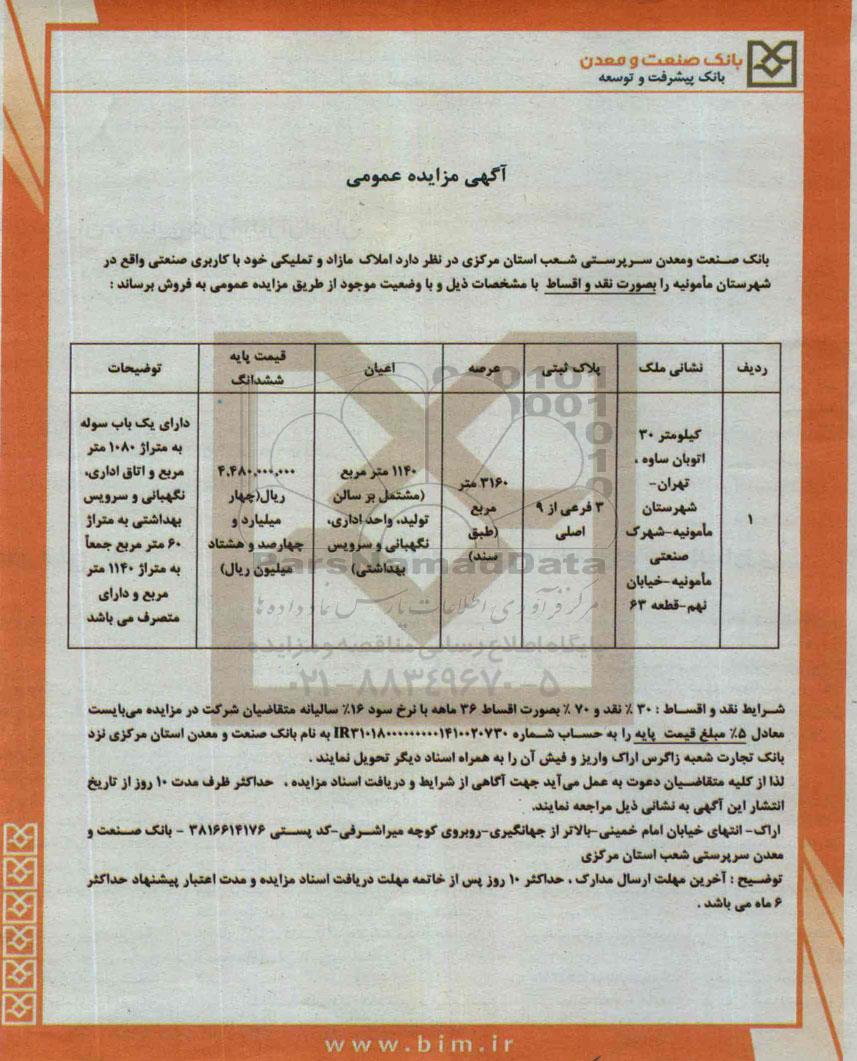 بانک صنعت و معدن
بانک پیشرفت و توسعه
آگهی مزایده عمومی
بانک صنعت ومعدن سرپرستی شعب استان مرکزی در نظر دارد املاک مازاد و تملیکی خود با کاربری صنعتی واقع در
شهرستان مأمونیه را بصورت نقد و اقساط با مشخصات ذیل و با وضعیت موجود از طریق مزایده عمومی به فروش برساند :
ردیف
نشانی ملک
پلاک ثبتی
عرصه
اعیان
قیمت پایه
ششدانگ
توضیحات
۱
کیلومتر ۳۰
اتوبان ساوه ،
تهران-
شهرستان
مأمونیه-شهرک
صنعتی
مأمونیه-خیابان
نهم-قطعه ۶۳
۳ فرعی از ۹
اصلی
۳۱۶۰ متر
مربع
(طبق
سند)
۱۱۴۰ متر مربع
(مشتمل بر سالن
تولید، واحد اداری،
نگهبانی و سرویس
بهداشتی)
۴,۴۸۰,۰۰۰,۰۰۰
ریال(چهار
میلیارد و
چهارصد و هشتاد
میلیون ریال)
دارای یک باب سوله
به متراژ ۱۰۸۰ متر
مربع و اتاق اداری،
نگهبانی و سرویس
بهداشتی به متراژ
۶۰ متر مربع جمعاً
به متراژ ۱۱۴۰ متر
مربع و دارای
متصرف می باشد
ParsNamadData
مرکز فرآوری اطلاعات پارس نماد داده ها
پایگاه اطلاع رسانی مناقصه و مزایده
۰۲۱-۸۸۳۴۹۶۷۰-۵
شرایط نقد و اقساط : ۳۰ ٪ نقد و ۷۰ ٪ بصورت اقساط ۳۶ ماهه با نرخ سود ۱۶٪ سالیانه متقاضیان شرکت در مزایده می‌بایست
معادل ۵٪ مبلغ قیمت پایه را به حساب شماره IR۳۱۰۱۸۰۰۰۰۰۰۰۰۰۰۱۴۱۰۰۲۰۷۳۰ به نام بانک صنعت و معدن استان مرکزی نزد
بانک تجارت شعبه زاگرس اراک واریز و فیش آن را به همراه اسناد دیگر تحویل نمایند .
لذا از کلیه متقاضیان دعوت به عمل می‌آید جهت آگاهی از شرایط و دریافت اسناد مزایده ، حداکثر ظرف مدت ۱۰ روز از تاریخ
انتشار این آگهی به نشانی ذیل مراجعه نمایند.
اراک- انتهای خیابان امام خمینی-بالاتر از جهانگیری-روبروی کوچه میراشرفی-کد پستی ۳۸۱۶۶۱۴۱۷۶ - بانک صنعت و
معدن سرپرستی شعب استان مرکزی
توضیح : آخرین مهلت ارسال مدارک ، حداکثر ۱۰ روز پس از خاتمه مهلت دریافت اسناد مزایده و مدت اعتبار پیشنهاد حداکثر
۶ ماه می باشد .
www.bim.ir